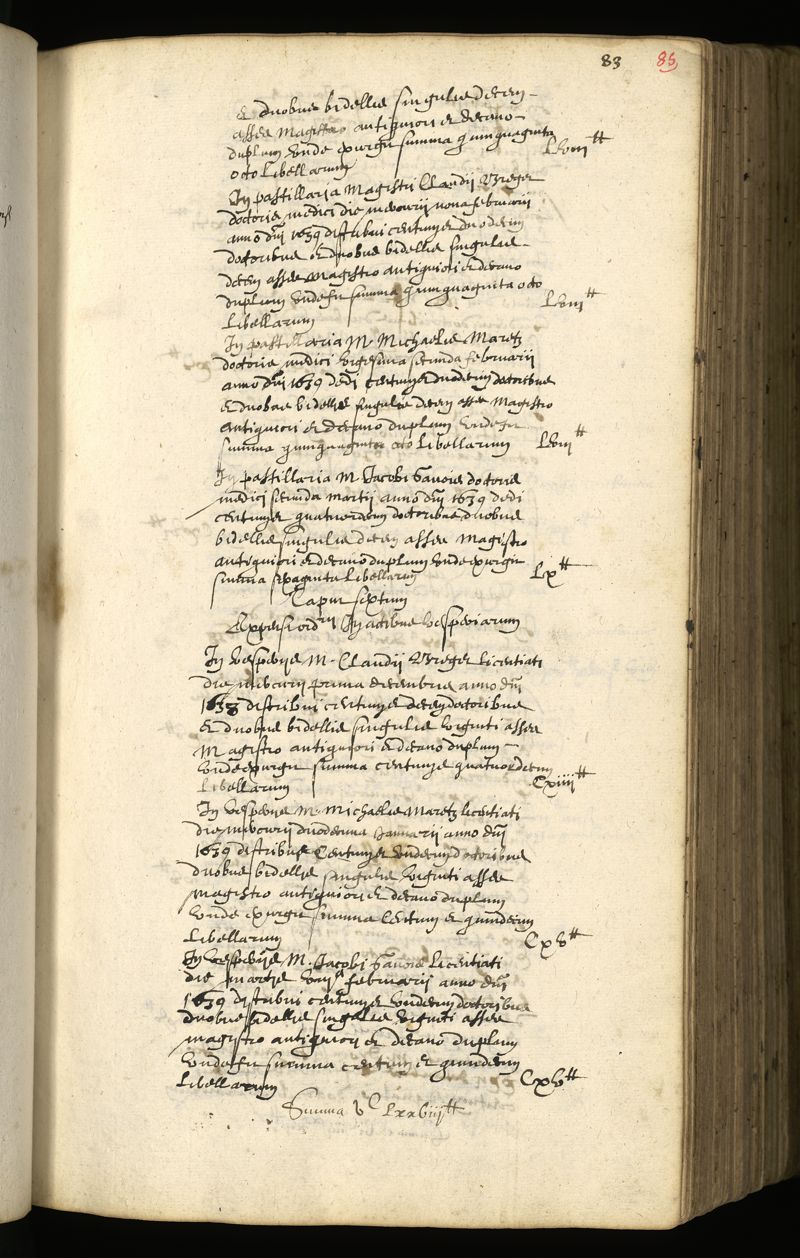 83 85
et duobus bidellis singulis decem
asses magistro antiquiori et decano
duplum unde exurgit summa quinquaginta
octo libellarum
Lviii tt
In pastillaria Magistri Claudii Breget
doctoris medici die mercurii nona februarii
anno dni 1639 distribui centum et duodecim
doctoribus et duobus bidellis singulis
decem asses magistro antiquiori et decano
duplum unde fit summa quinquaginta octo
libellarum
Lviii tt
In pastillaria M. Michaelis Maretz
doctoris medici vigesima secunda februarii
anno dni 1639 dedi centum et duodecim doctoribus
et duobus bidellis singulis decem asses Magistro
antiquiori et decano duplum unde fit
summa quinquaginta octo libellarum
Lviii tt
In pastillaria M. Jacobi doctoris
medici secunda martii anno dni 1639 dedi
centum et quatuordecim doctoribus duobus
bidellis singulis decem asses magistro
antiquiori et decano duplum unde exurgit
summa sexaginta libellarum
Lx tt
Caput sextum
In actibus vesperiarum
In vesperiis M. Claudii Breget licentiati
die mercurii prima decembris anno dni
1638 distribui centum et decem doctoribus
et duobus bidellis singulis viginti asses
Magistro antiquiori et decano duplum
unde exurgit summa centum et quatuordecim
libellarum
Cxiiii tt
In vesperiis M. Michaelis Maretz licentiati
die mercurii duodecima Januarii anno dni
1639 distribui Centum et undecim doctoribus
duobus bidellis singulis viginti asses
magistro antiquiori et decano duplum
unde exurgit summa Centum et quindecim
libellarum
Cxv tt
In vesperiis M. Jacobi licentiati
die martis februarii anno dni
1639 distribui centum et undecim doctoribus
duobus bidellis singulis viginti asses
magistro antiquiori et decano duplum
unde fit summa centum et quindecim
libellarum
Cxv tt
Summa v C Lxxviii tt